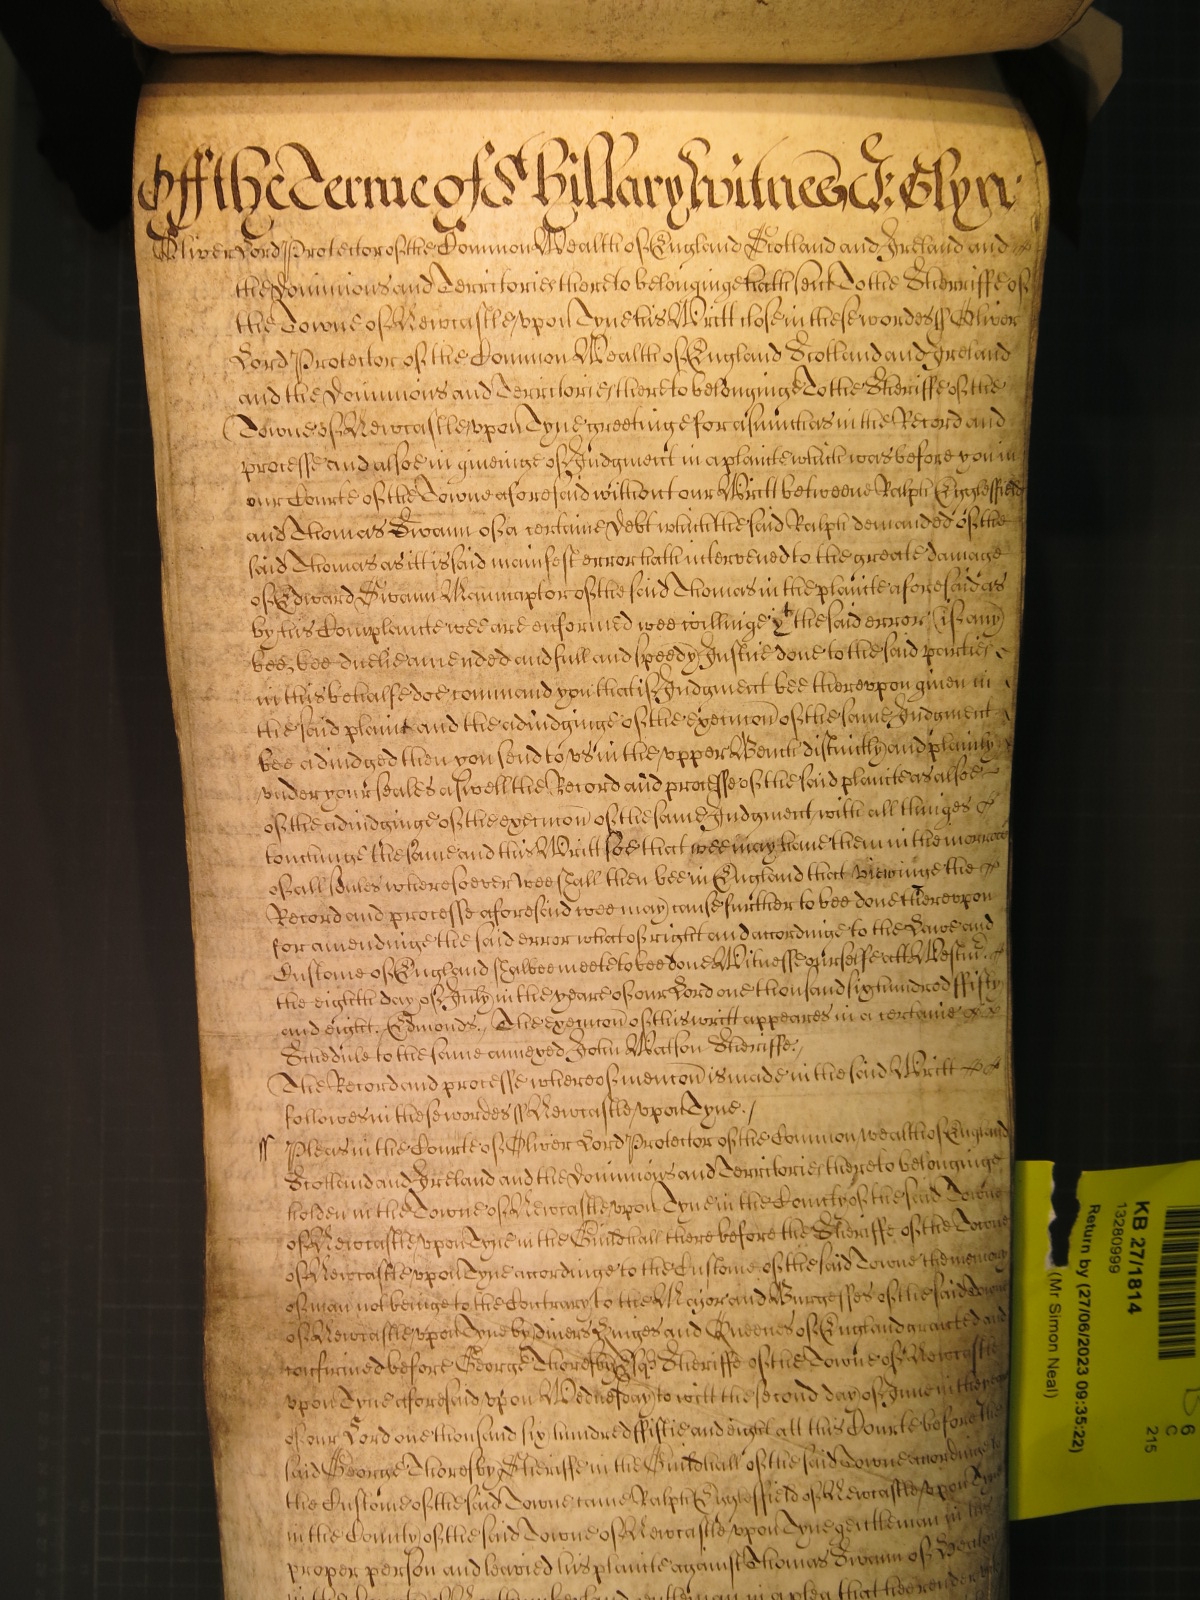 Off the Terme of St Hillary Witnes J: Glyn
Oliver Lord Protector of the Common Wealth of England Scotland and Ireland and
the Dominions and Territories thereto belonginge hath sent To the Sherriffe of
the Towne of Newcastle upon Tyne his Writt close in these wordes ss Oliver
Lord Protector of the Common Wealth of England Scotland and Ireland
and the Dominions and Territories thereto belonginge To the Sheriffe of the
Towne of Newcastle upon Tyne greetinge for asmuch as in the Record and
processe and alsoe in giveinge of Judgment in a plainte which was before you in
our Courte of the Towne aforesaid without our Writt betweene Ralph Egglesfield
and Thomas Swann of a certaine Debt which the said Ralph demanded of the
said Thomas as itt is said manifest error hath intervened to the greate damage
of Edward Swann Manucaptor of the said Thomas in the plainte aforesaid as
by his Complainte wee are enformed wee willinge yt the said error (if any
bee, bee duelie amended and full and speedy Justice done to the said parties
in this behalfe doe command you that if Judgment bee thereupon given in
the said plaint and the adiudginge of the execucon of the same Judgment
bee adiudged then you send to us in the upper Bench distinctly and plainly
under your seales aswell the Record and processe of the said plainte as alsoe
of the adiudginge of the execucon of the same Judgment with all thinges
touchinge the same and this Writt soe that wee may have them in the morrow
of all soules wheresoever wee shall then bee in England that viewinge the
Record and processe aforesaid wee may cause further to bee done thereupon
for amendinge the said error what of right and accordinge to the Lawe and
Custome of England shalbee meete to bee done Witnesse ourselfe att Westm.
the eighth day of July in the yeare of our Lord one thousand six hundred ffifty
and eight. Edmonds. The execucon of this writt appeares in a certaine
Schedule to the same annexed John Watson Sheriffe.
The Record and processe whereof mencon is made in the said Writt
followes in these wordes ss Newcastle upon Tyne./
ss Pleas in the Courte of Oliver Lord Protector of the Common wealth of England
Scotland and Ireland and the Dominions and Territories thereto belonginge
holden in the Towne of Newcastle upon Tyne in the County of the said Towne
of Newcastle upon Tyne in the Guildhall there before the Sheriffe of the Towne
of Newcastle upon Tyne accordinge to the Custome of the said Towne the memory
of man not beinge to the Contrary to the Mayor and Burgesses of the said Towne
of Newcastle upon Tyne by divers Kinges and Queenes of England graunted and
confirmed before George Thoresby Esqr Sheriffe of the Towne of Newcastle
upon Tyne aforesaid upon Wednesday to witt the second day of June in the yeare
of our Lord one thousand six hundred ffiftie and eight att this Courte before the
said George Thoresby Sheriffe in the Guildhall of the said Towne accordinge to
the Custome of the said Towne came Ralph Egglesfield of Newcastle upon Tyne
in the County of the said Towne of Newcastle upon Tyne gentleman in his
proper person and leavied his plainte against Thomas Swann of
gentleman in a plea that hee render
KB 27/1814
13280999
Return by (27/06/2023 09:35:22)
(Mr Simon Neal)
6
C
215